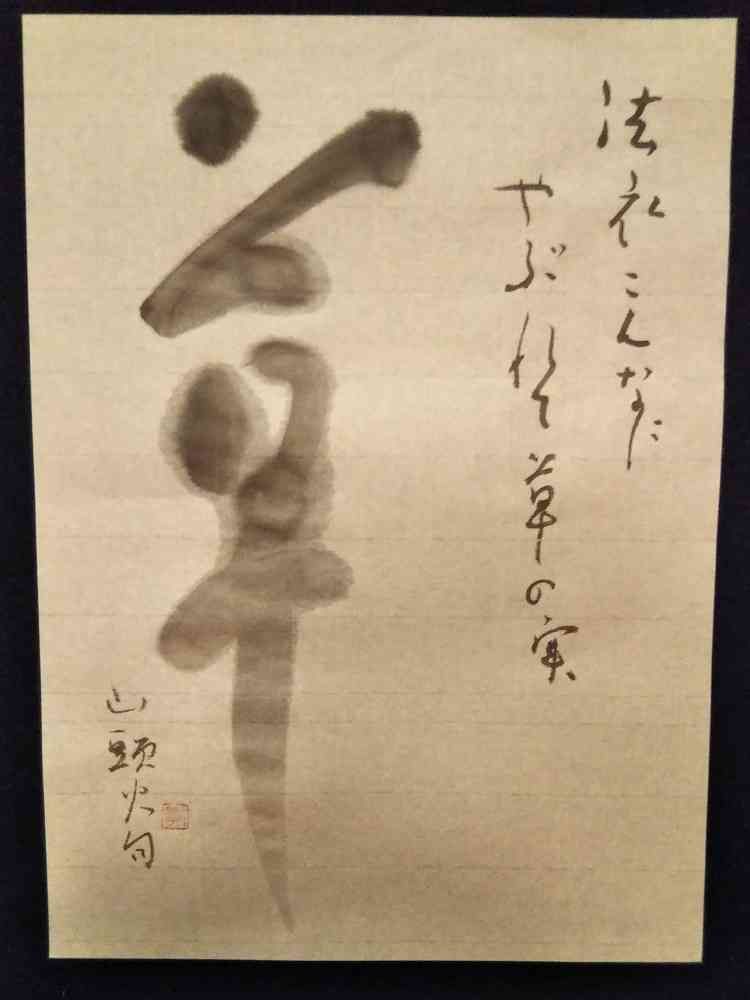 法衣こんなに
やぶれて草の実
草
山頭火句